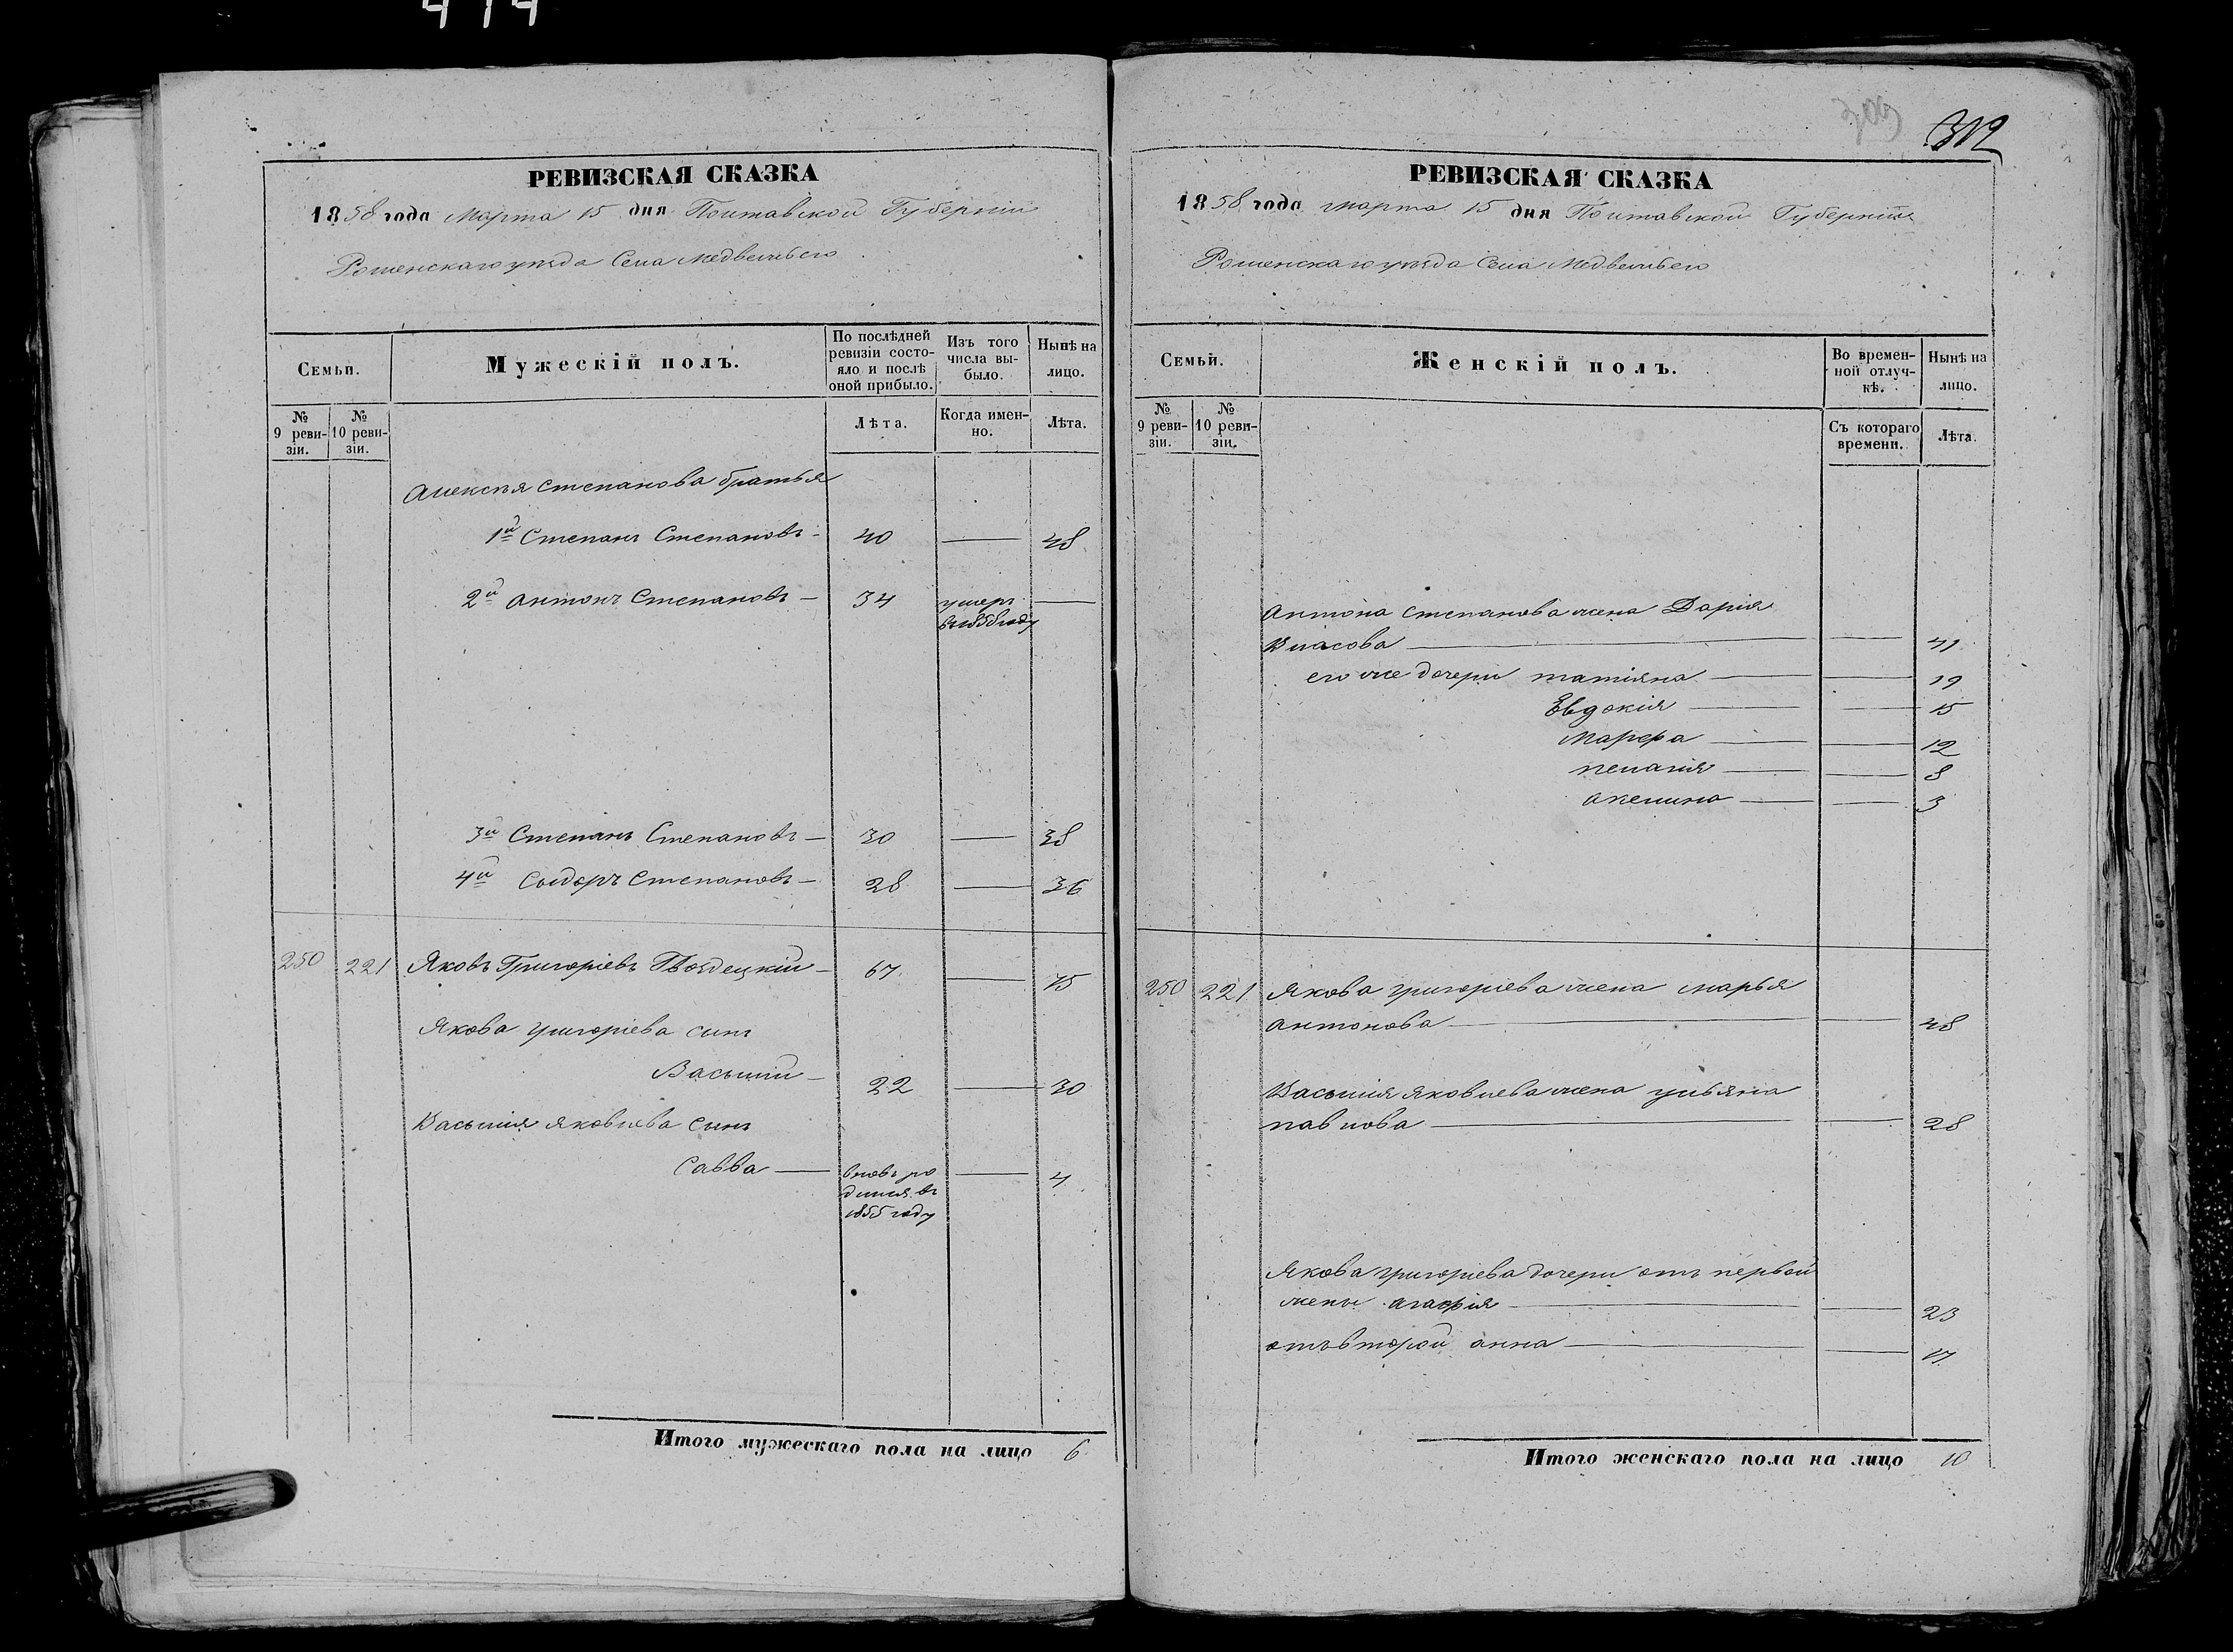 414
РЕВИЗСКАЯ СКАЗКА
1858 года Марта 15 дня Полтавской Губерніи
Роменскаго уѣзда Села Медвежьего
Семьи.
Мужескій полъ.
По послѣдней ревизіи состояло и послѣ оной прибыло.
Изъ того числа выбыло.
Нынѣ на лицо.
№ 9 ревизіи.
№ 10 ревизіи.
Лѣта.
Когда именно.
Лѣта.
Алексѣя Степанова братья
1й Степанъ Степановъ 40 — 48
2й Антонъ Степановъ 34 умеръ —
въ 1858 году
3й Степанъ Степановъ 30 — 38
4й Сидоръ Степановъ 28 — 36
250 221 Яковъ Григоріевъ Гвоздецкій 67 — 75
Якова Григоріева сынъ
Василій 22 — 30
Василія Яковлева сынъ
Савва вновь ро — 4
дился въ
1855 году
Итого мужескаго пола на лицо 6
309
312
РЕВИЗСКАЯ СКАЗКА
1858 года Марта 15 дня Полтавской Губерніи
Роменскаго уѣзда Села Медвежьего
Семьи.
Женскій полъ.
Во временной отлучкѣ.
Нынѣ на лицо.
№ 9 ревизіи.
№ 10 ревизіи.
Съ котораго времени.
Лѣта.
Антона Степанова жена Дарія
Власова — 41
его же дочери Татіяна — 19
Евдокія — 15
Марфа — 12
Пелагія — 8
Акелина — 3
250 221 Якова Григоріева жена Марья
Антонова — 48
Василія Яковлева жена Ульяна
Павлова — 28
Якова Григоріева дочери отъ первой
жены Агафія — 23
отъ второй Анна — 17
Итого женскаго пола на лицо 10